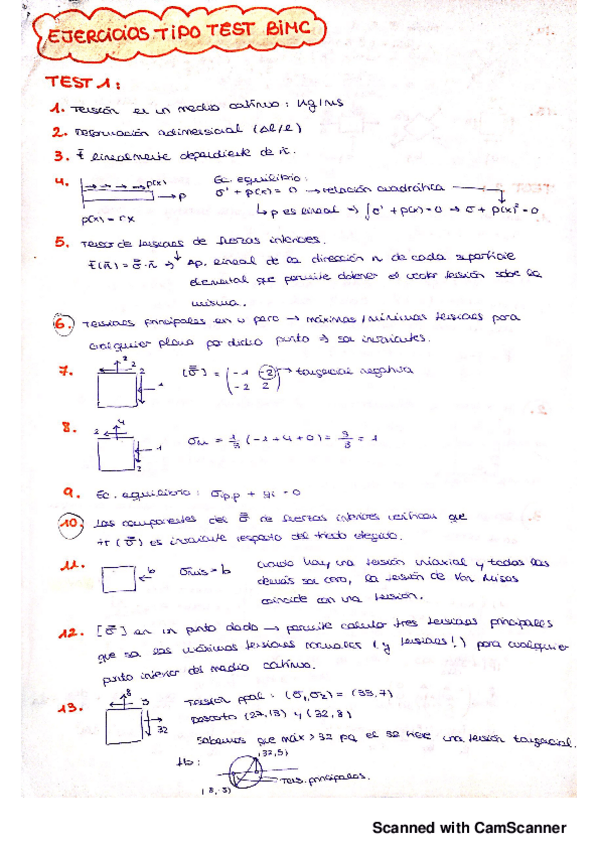 EJERCICIOS TIPO TEST BIMC
TEST 1:
1. Tensión en un medio continuo: Kg/ms
2. Deformación adimensional (Δl/l)
3. t̄ linealmente dependiente de n̄.
4. p(x) → p
p(x) = rx
Ec. equilibrio:
σ' + p(x) = 0 → relación cuadrática
↳ p es lineal ⇒ ∫σ' + p(x) = 0 ⇒ σ + p(x)² = 0
5. Tensor de tensiones de fuerzas interiores.
t̄(n̄) = σ̿ · n̄ ⇒ Ap. lineal de la dirección n de cada superficie
elemental que permite obtener el vector tensión sobre la
misma.
6. Tensiones principales en un pto → máximas/mínimas tensiones para
cualquier plano por dicho punto ⇒ son invariantes.
7. 2 2 2 1 [σ̿] = (-1 -2 -2 2) → tangencial negativa
8. 4 2 1 2 σm = 1/3 (-1+4+0) = 3/3 = 1
9. Ec. equilibrio: σp,p + γi = 0
10. Las componentes del σ̿ de fuerzas interiores verifican que
tr(σ̿) es invariante respecto del triedro elegido.
11. b σmis = b cuando hay una tensión uniaxial y todas las
demás son cero, la tensión de Von Mises
coincide con una tensión.
12. [σ̿] en un punto dado → permite calcular tres tensiones principales
que son las máximas tensiones normales (y tensiones!) para cualquier
punto interior del medio continuo.
13. 8 3 32 Tensión ppal: (σ1,σ2) = (33,7)
Descarto (27,13) y (32,8)
Sabemos que máx > 32 pq el 32 tiene una tensión tangencial.
(32,5)
Tens. principales.
Scanned with CamScanner